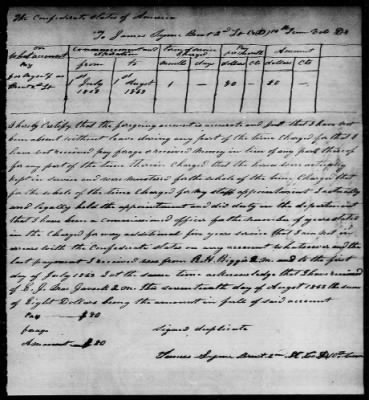 The Confederate States of America
To James Tyme Brevt 2nd Lt Co D 10th Tenn Vol Dr
On What account
Commencement and Expiration
Term of Service Charged
Pay per Month
Amount
from
to
months
days
dollars
Cts
dollars
Cts
Pay
for myself as
Brevt 2nd Lt
1st July 1863
1st August 1863
1
—
80
—
80
—
I hereby Certify that the foregoing account is accurate and just that I have not
been absent without leave during any part of the time Charged for that I
have not received pay forage or received Money in lieu of any part thereof
for any part of the time Therein Charged that the horses were actually
kept in service and were mustered for the whole of the time Charged that
for the whole of the time Charged for my staff appointment I actually
and legally held the appointment and did duty in the department
that I have been a commissioned officer for the number of years stated
in the Charge for every additional five years service that I am not in
arrears with the Confederate States on any account whatsoever and the
last payment I received was from R. H. Biggs Q.M. and to the first
day of July 1863 I at the same time acknowledge that I have received
of E. J. the seventeenth day of August 1863 the sum
of Eight Dollars being the amount in full of said account
Pay — $80
forage
Amount — $80
Signed duplicate
James Tyme Brevt 2nd Lt Co D 10th Tenn